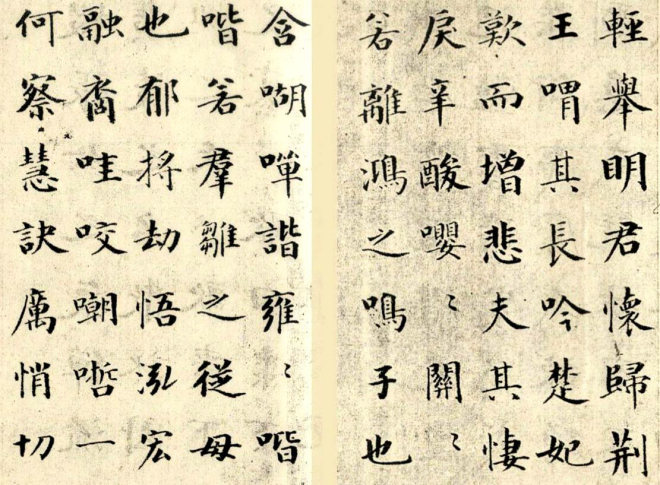 輕舉明君懷歸荊
王喟其長吟楚妃
歎而增悲夫其悽
戾辛酸嚶〻關〻
若離鴻之鳴子也
含喖嘽諧雍〻喈
喈若羣雛之從母
也郁捋劫悟泓宏
融裔哇咬嘲哳一
何察慧訣厲悄切